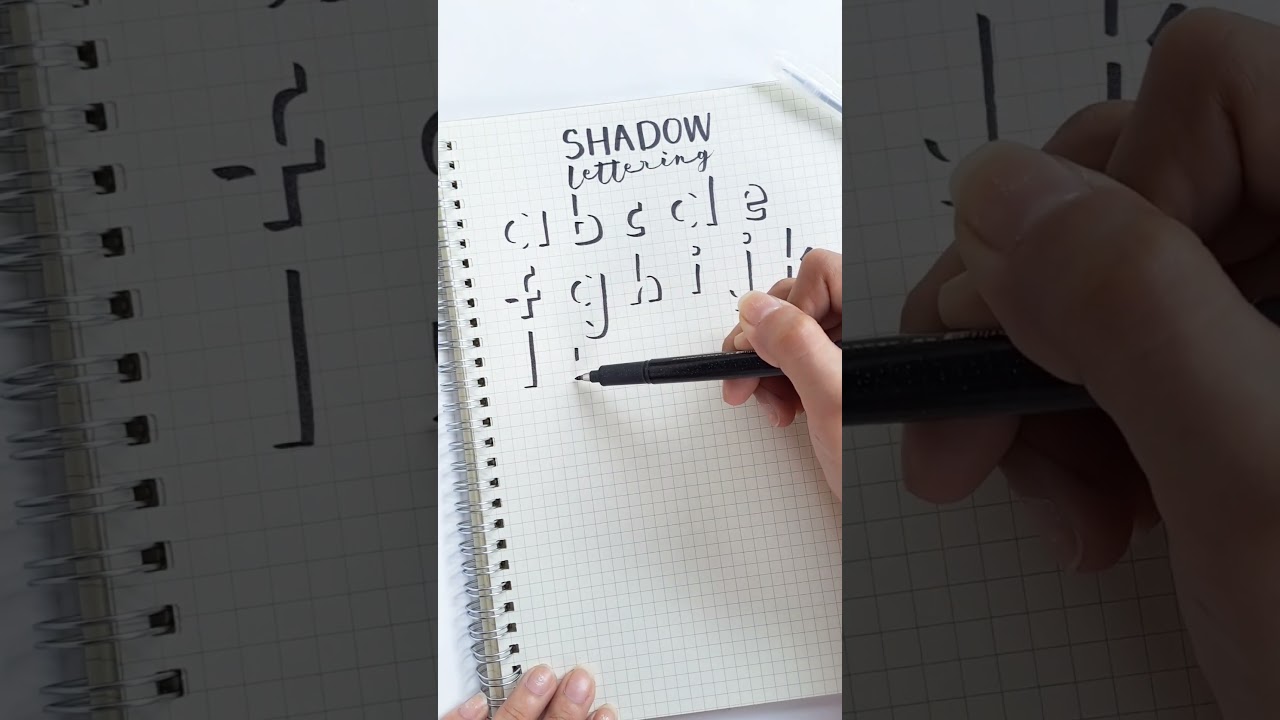 SHADOW
lettering
a b c d e
f g h i j k
l